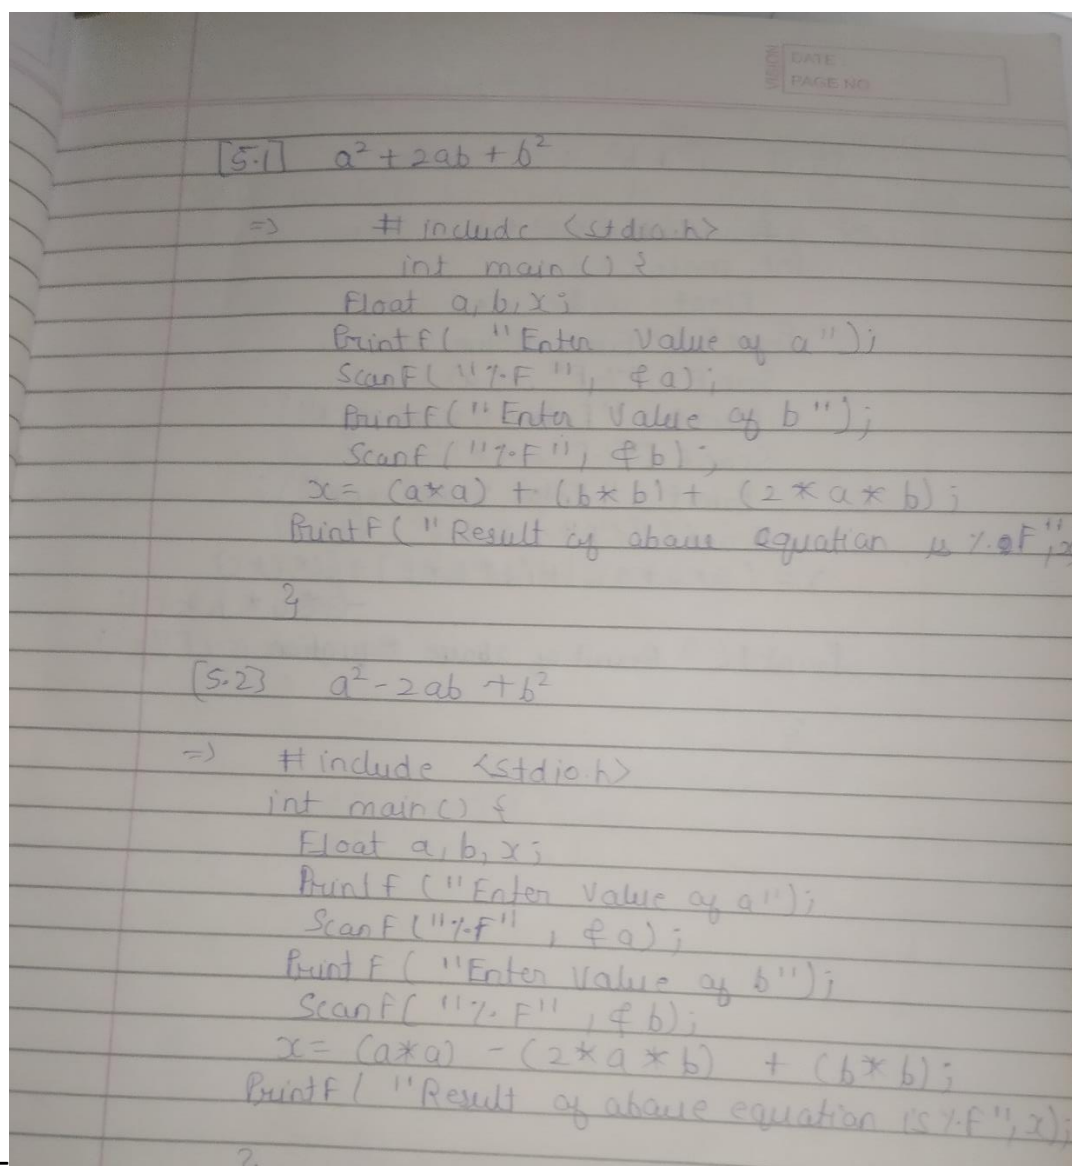 VISION
DATE
PAGE NO
[5.1] a² + 2ab + b²
=> # include <stdio.h>
int main () {
Float a, b, x;
PrintF( "Enter Value of a");
ScanF( "%F", &a);
PrintF("Enter Value of b");
ScanF ("%F", &b);
x = (a*a) + (b*b) + (2*a*b);
PrintF ("Result of above equation is %.2F", x
}
[5.2] a² - 2ab + b²
=> # include <stdio.h>
int main () {
Float a, b, x;
PrintF ("Enter Value of a");
ScanF ("%F", &a);
PrintF ("Enter Value of b");
ScanF( "%F", &b);
x = (a*a) - (2*a*b) + (b*b);
PrintF( "Result of above equation is %F", x);